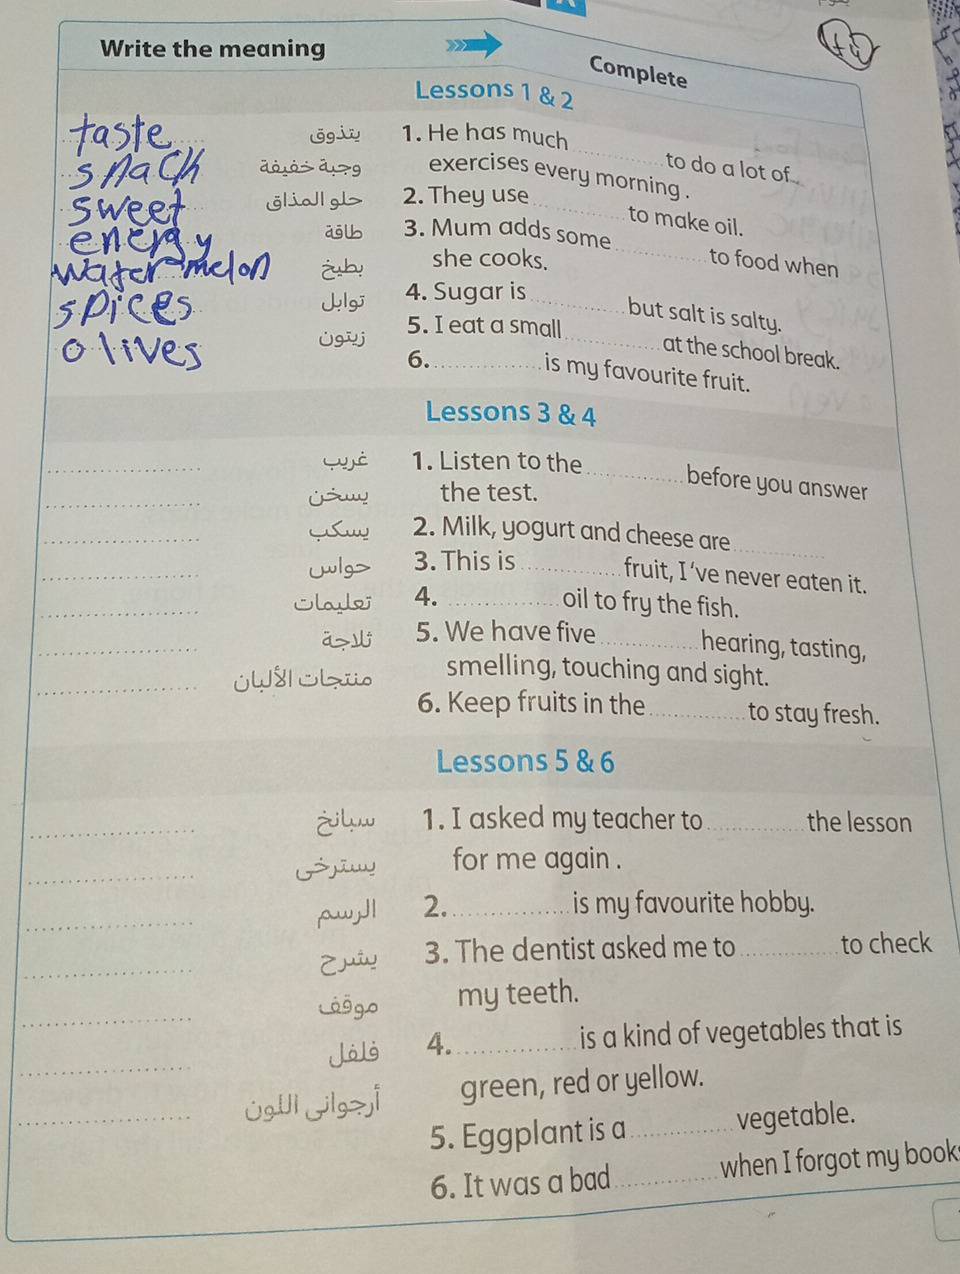 Write the meaning
Complete
Lessons 1 & 2
taste
يتذوق
snack
وجبة خفيفة
sweet
حلو المذاق
energy
طاقة
watermelon
بطيخ
spices
توابل
olives
زيتون
1. He has much ............ to do a lot of
exercises every morning .
2. They use ............ to make oil.
3. Mum adds some ............ to food when
she cooks.
4. Sugar is ............ but salt is salty.
5. I eat a small ............ at the school break.
6. ............ is my favourite fruit.
Lessons 3 & 4
غريب
يسخن
يسكب
حواس
تعليمات
ثلاجة
منتجات الألبان
1. Listen to the ............ before you answer
the test.
2. Milk, yogurt and cheese are ............
3. This is ............ fruit, I've never eaten it.
4. ............ oil to fry the fish.
5. We have five ............ hearing, tasting,
smelling, touching and sight.
6. Keep fruits in the ............ to stay fresh.
Lessons 5 & 6
سبانخ
يسترخى
الرسم
يشرح
موقف
فلفل
أرجوانى اللون
1. I asked my teacher to ............ the lesson
for me again .
2. ............ is my favourite hobby.
3. The dentist asked me to ............ to check
my teeth.
4. ............ is a kind of vegetables that is
green, red or yellow.
5. Eggplant is a ............ vegetable.
6. It was a bad ............ when I forgot my book